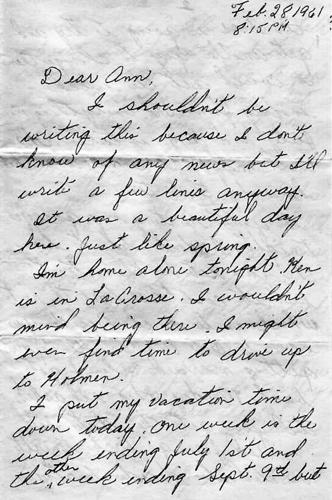 Feb. 28 1961
8:15 PM
Dear Ann,
I shouldn't be
writing this because I don't
know of any news but I'll
write a few lines anyway.
It was a beautiful day
here. Just like spring.
I'm home alone tonight. Ken
is in LaCrosse. I wouldn't
mind being there. I might
even find time to drive up
to Holmen.
I put my vacation time
down today. One week is the
week ending July 1st and
the other week ending Sept. 9th but